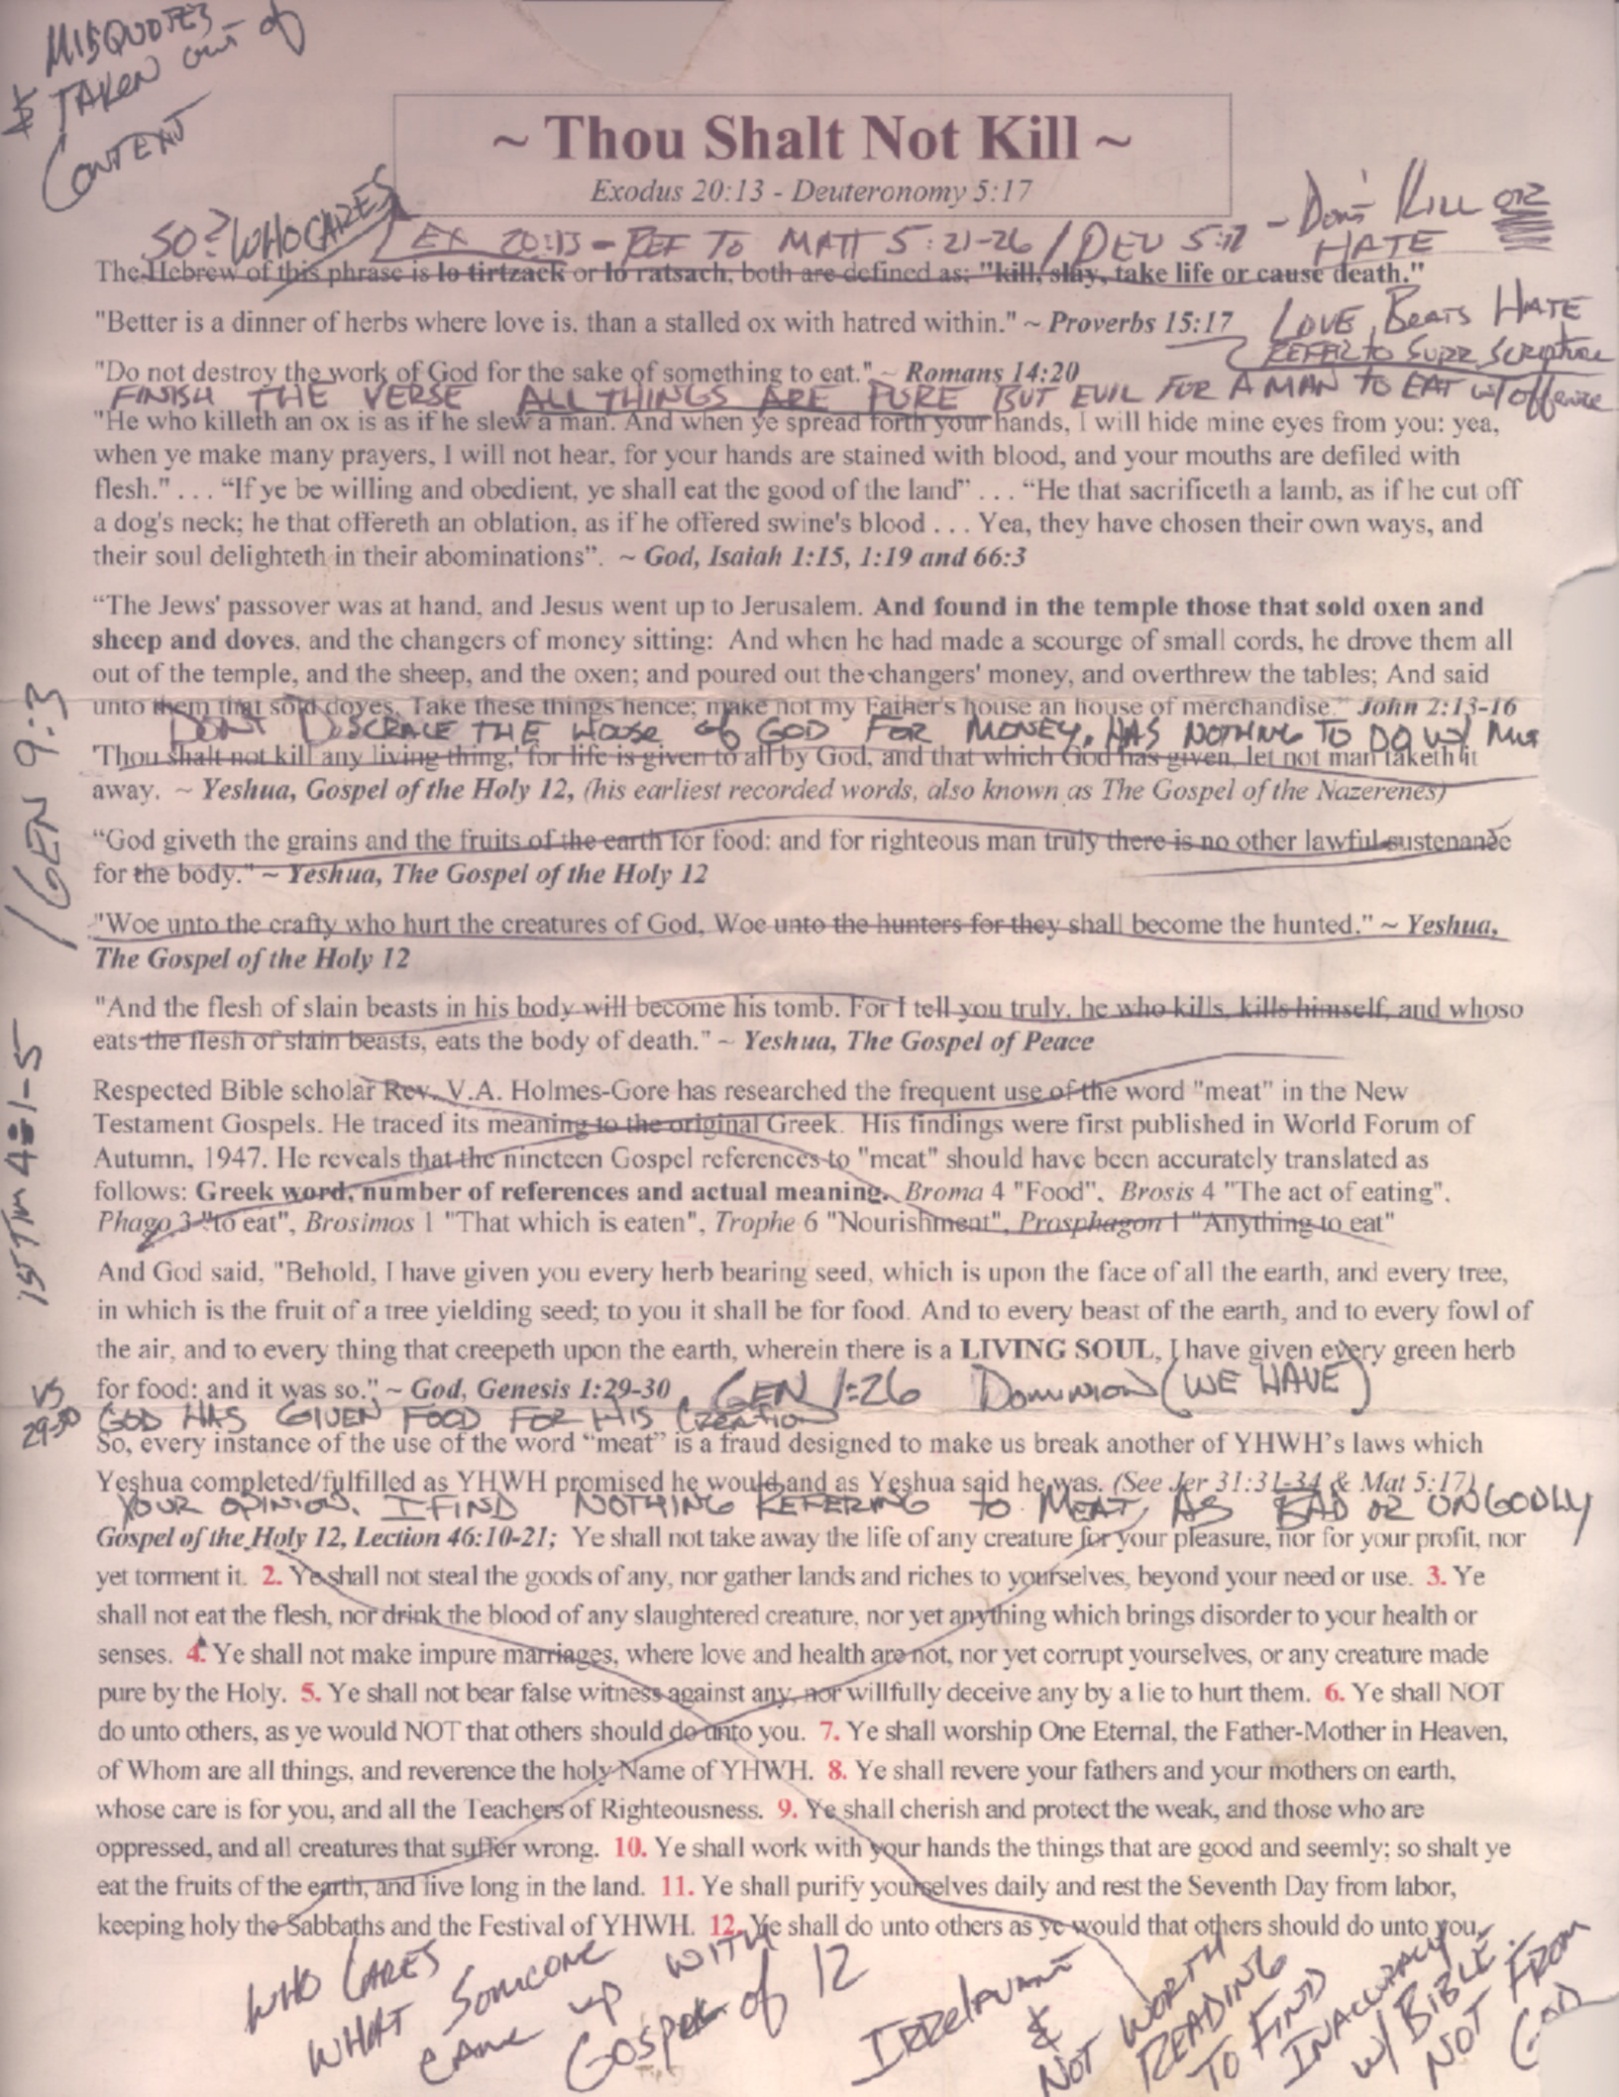 MISQUOTES -
& TAKEN out of
CONTENT
~ Thou Shalt Not Kill ~
Exodus 20:13 - Deuteronomy 5:17
SO? WHO CARES
EX 20:13 - REF TO MATT 5:21-26 / DEU 5:17 - Don't KILL OR
HATE
The Hebrew of this phrase is lo tirtzack or lo ratsach, both are defined as: "kill, slay, take life or cause death."
"Better is a dinner of herbs where love is, than a stalled ox with hatred within." ~ Proverbs 15:17
LOVE Beats HATE
REFER to SURR Scripture
"Do not destroy the work of God for the sake of something to eat." ~ Romans 14:20
FINISH THE VERSE ALL THINGS ARE PURE BUT EVIL FOR A MAN TO EAT w/ offense
"He who killeth an ox is as if he slew a man. And when ye spread forth your hands, I will hide mine eyes from you: yea,
when ye make many prayers, I will not hear, for your hands are stained with blood, and your mouths are defiled with
flesh." . . . “If ye be willing and obedient, ye shall eat the good of the land” . . . “He that sacrificeth a lamb, as if he cut off
a dog's neck; he that offereth an oblation, as if he offered swine's blood . . . Yea, they have chosen their own ways, and
their soul delighteth in their abominations”. ~ God, Isaiah 1:15, 1:19 and 66:3
“The Jews' passover was at hand, and Jesus went up to Jerusalem. And found in the temple those that sold oxen and
sheep and doves, and the changers of money sitting: And when he had made a scourge of small cords, he drove them all
out of the temple, and the sheep, and the oxen; and poured out the changers' money, and overthrew the tables; And said
unto them that sold doves, Take these things hence; make not my Father's house an house of merchandise." John 2:13-16
DONT DISCRACE THE HOUSE of GOD FOR MONEY. HAS NOTHING TO DO W/
'Thou shalt not kill any living thing,' for life is given to all by God, and that which God has given, let not man taketh it
away. ~ Yeshua, Gospel of the Holy 12, (his earliest recorded words, also known as The Gospel of the Nazerenes)
/GEN 9:3
“God giveth the grains and the fruits of the earth for food: and for righteous man truly there is no other lawful sustenance
for the body." ~ Yeshua, The Gospel of the Holy 12
"Woe unto the crafty who hurt the creatures of God, Woe unto the hunters for they shall become the hunted." ~ Yeshua,
The Gospel of the Holy 12
"And the flesh of slain beasts in his body will become his tomb. For I tell you truly, he who kills, kills himself, and whoso
eats the flesh of slain beasts, eats the body of death." ~ Yeshua, The Gospel of Peace
1ST Tm 4:1-5
Respected Bible scholar Rev. V.A. Holmes-Gore has researched the frequent use of the word "meat" in the New
Testament Gospels. He traced its meaning to the original Greek. His findings were first published in World Forum of
Autumn, 1947. He reveals that the nineteen Gospel references to "meat" should have been accurately translated as
follows: Greek word, number of references and actual meaning. Broma 4 "Food", Brosis 4 "The act of eating",
Phago 3 "to eat", Brosimos 1 "That which is eaten", Trophe 6 "Nourishment", Prosphagon 1 "Anything to eat"
And God said, "Behold, I have given you every herb bearing seed, which is upon the face of all the earth, and every tree,
in which is the fruit of a tree yielding seed; to you it shall be for food. And to every beast of the earth, and to every fowl of
the air, and to every thing that creepeth upon the earth, wherein there is a LIVING SOUL, I have given every green herb
for food: and it was so." ~ God, Genesis 1:29-30
GEN 1:26 DOMINION (WE HAVE)
VS
29-30
GOD HAS GIVEN FOOD FOR HIS CREATION
So, every instance of the use of the word “meat” is a fraud designed to make us break another of YHWH’s laws which
Yeshua completed/fulfilled as YHWH promised he would and as Yeshua said he was. (See Jer 31:31-34 & Mat 5:17)
YOUR OPINION. I FIND NOTHING REFERING to MEAT AS BAD OR UNGODLY
Gospel of the Holy 12, Lection 46:10-21; Ye shall not take away the life of any creature for your pleasure, nor for your profit, nor
yet torment it. 2. Ye shall not steal the goods of any, nor gather lands and riches to yourselves, beyond your need or use. 3. Ye
shall not eat the flesh, nor drink the blood of any slaughtered creature, nor yet anything which brings disorder to your health or
senses. 4. Ye shall not make impure marriages, where love and health are not, nor yet corrupt yourselves, or any creature made
pure by the Holy. 5. Ye shall not bear false witness against any, nor willfully deceive any by a lie to hurt them. 6. Ye shall NOT
do unto others, as ye would NOT that others should do unto you. 7. Ye shall worship One Eternal, the Father-Mother in Heaven,
of Whom are all things, and reverence the holy Name of YHWH. 8. Ye shall revere your fathers and your mothers on earth,
whose care is for you, and all the Teachers of Righteousness. 9. Ye shall cherish and protect the weak, and those who are
oppressed, and all creatures that suffer wrong. 10. Ye shall work with your hands the things that are good and seemly; so shalt ye
eat the fruits of the earth, and live long in the land. 11. Ye shall purify yourselves daily and rest the Seventh Day from labor,
keeping holy the Sabbaths and the Festival of YHWH. 12. Ye shall do unto others as ye would that others should do unto you.
WHO CARES
WHAT SOMEONE
CAME UP WITH
GOSPEL of 12
IRRELAVANT
&
NOT WORTH
READING
TO FIND
INACCURACY
W/ BIBLE.
NOT FROM
GOD